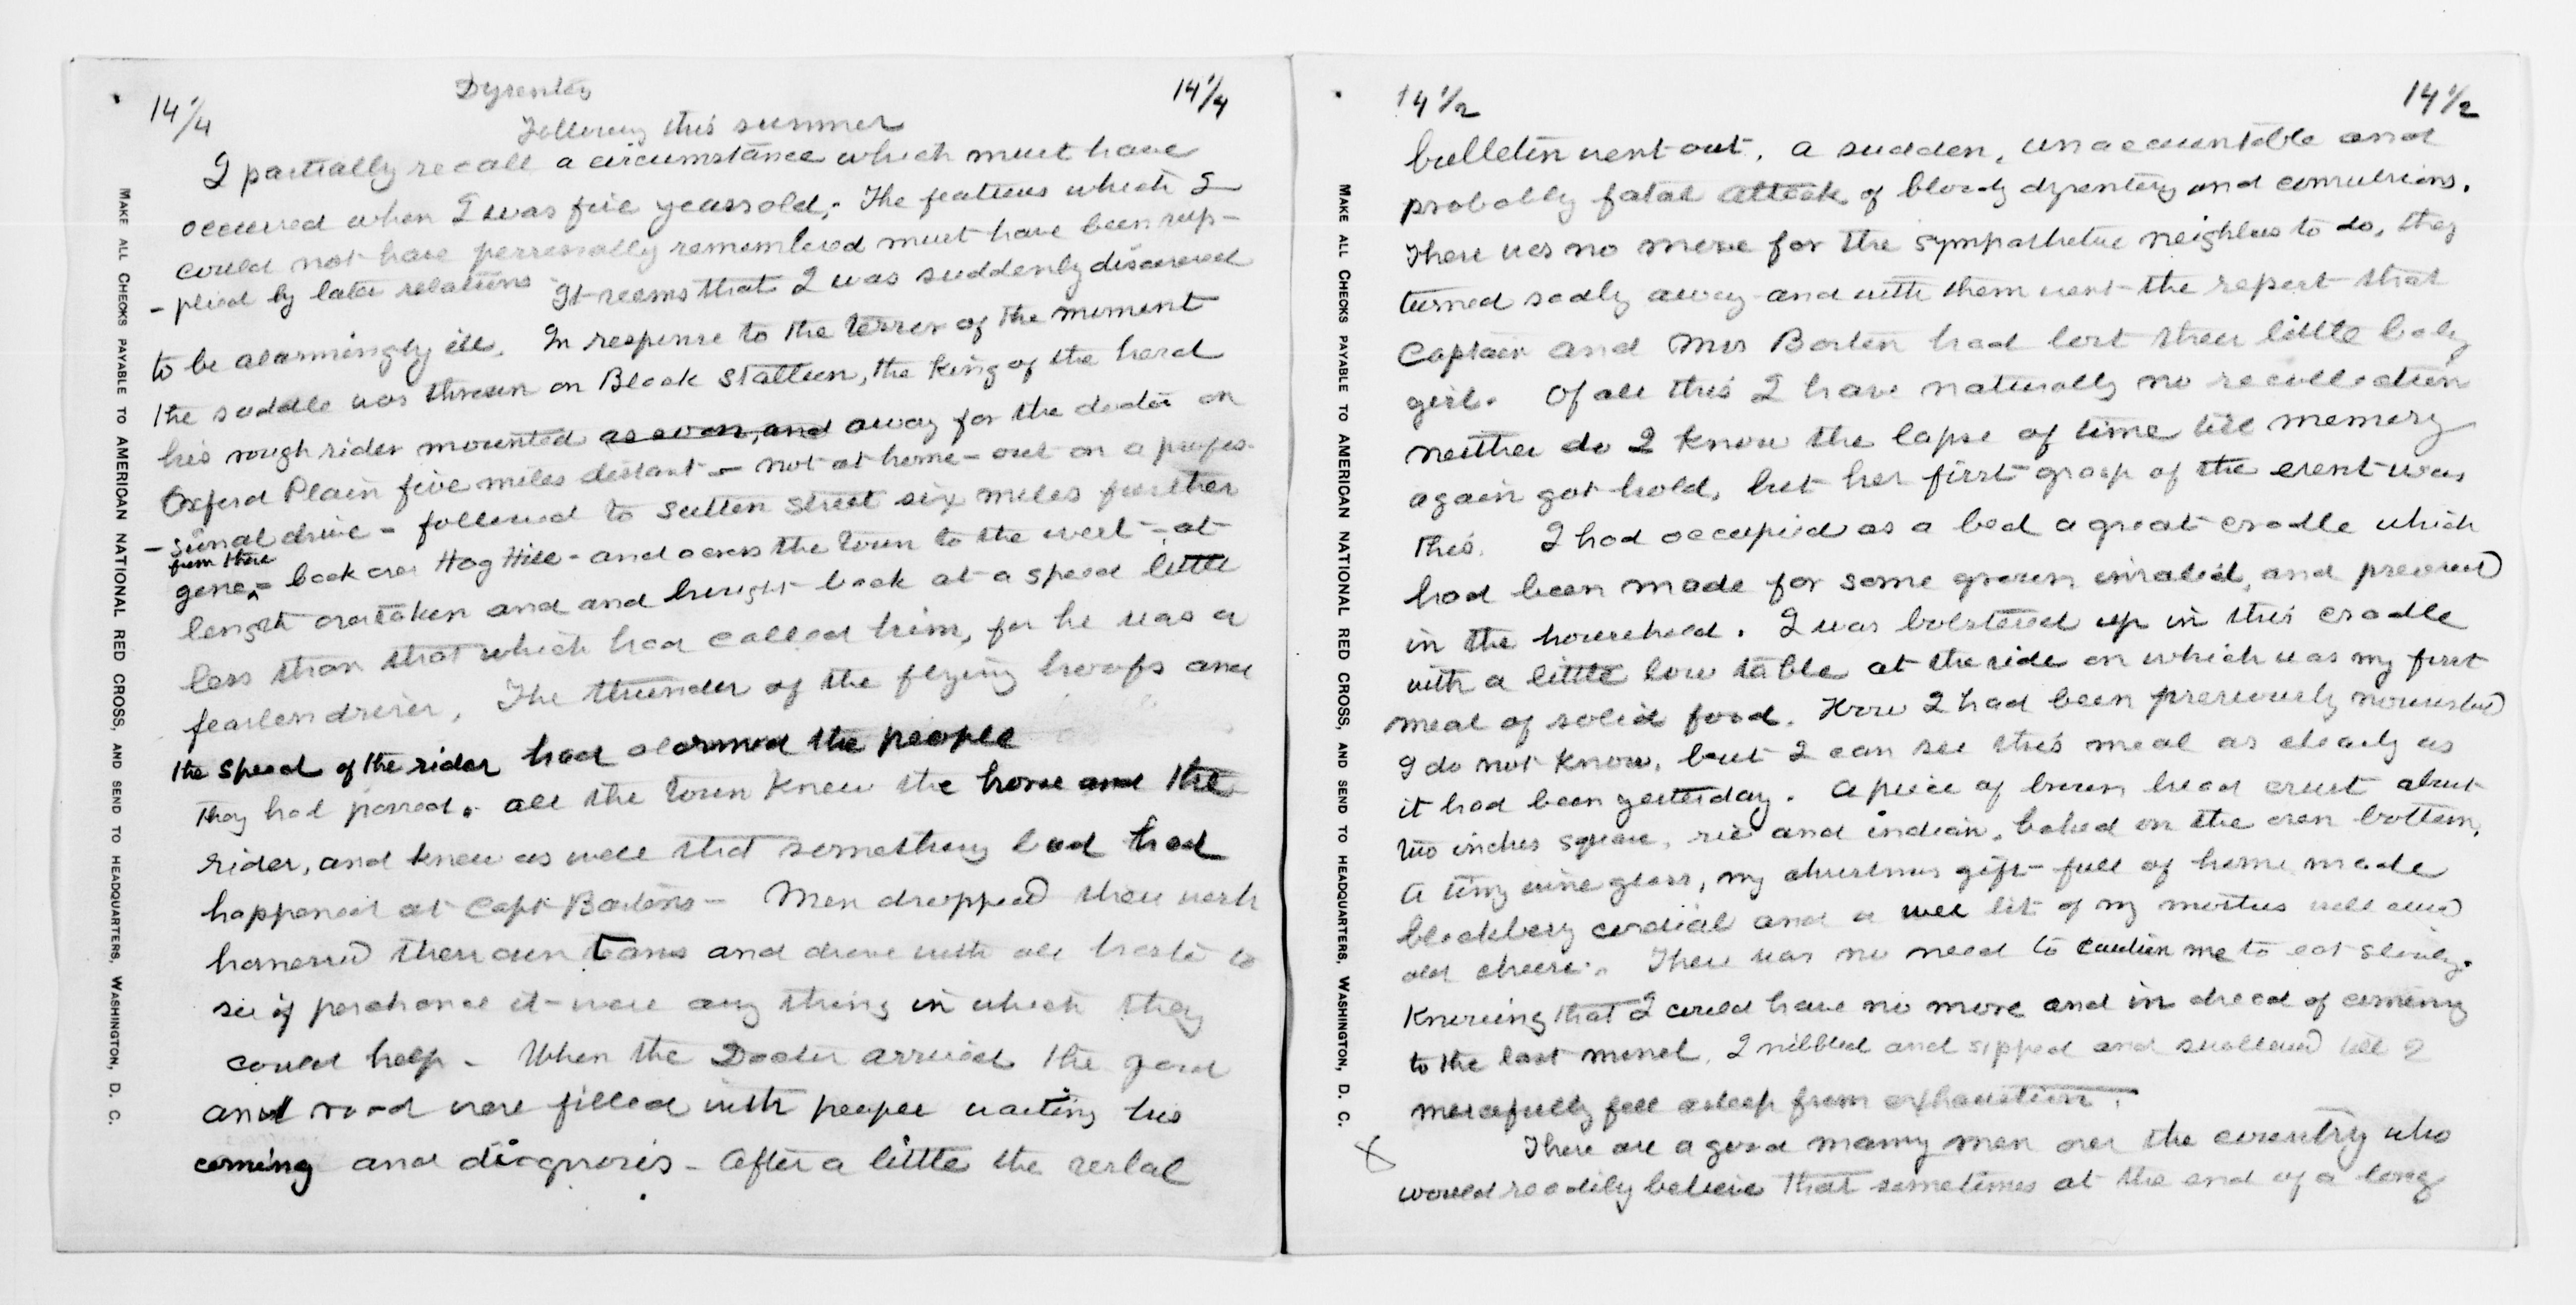 14 1/4
Dysentery
14 1/4
Following this summer
I partially recall a circumstance which must have
occurred when I was five years old,- The features which I
could not have personally remembered must have been sup-
-plied by later relations It seems that I was suddenly discovered
to be alarmingly ill. In response to the terror of the moment
the saddle was thrown on Black Stallion, the king of the herd
his rough rider mounted as soon, and away for the doctor on
Oxford Plain five miles distant - not at home - out on a profes-
-sional drive - followed to Sutton Street six miles further
from there
gone - back over Hog Hill - and across the town to the west - at
length overtaken and and brought back at a speed little
less than that which had called him, for he was a
fearless driver, The thunder of the flying hoofs and
the speed of the rider had alarmed the people
they had passed. all the town knew the horse and the
rider, and knew as well that something bad had
happened at Capt Bartons - Men dropped their work
harnessed their own teams and drove with all haste to
see if perchance it were any thing in which they
could help - When the Doctor arrived the yard
and road were filled with people waiting his
coming and diagnosis - After a little the verbal
MAKE ALL CHECKS PAYABLE TO AMERICAN NATIONAL RED CROSS, AND SEND TO HEADQUARTERS, WASHINGTON, D. C.
14 1/2
14 1/2
bulletin went out. a sudden, unaccountable and
probably fatal attack of bloody dysentery and convulsions.
There was no more for the sympathetic neighbors to do, they
turned sadly away and with them went the report that
Captain and Mrs Barton had lost their little baby
girl. Of all this I have naturally no recollection
neither do I know the lapse of time till memory
again got hold, but her first grasp of the event was
this. I had occupied as a bed a great cradle which
had been made for some grown invalid, and preserved
in the household. I was bolstered up in this cradle
with a little low table at the side on which was my first
meal of solid food. How I had been previously nourished
I do not know, but I can see this meal as clearly as
it had been yesterday. A piece of brown bread crust about
two inches square, rie and indian, baked on the oven bottom,
a tiny wine glass, my christmas gift - full of home made
blackbery cordial and a wee bit of my mothers well cured
old cheese. There was no need to caution me to eat slowly.
Knowing that I could have no more and in dread of coming
to the last morsel, I nibbled and sipped and swallowed till I
mercifully fell asleep from exhaustion.
X There are a good many men over the country who
would readily believe that sometimes at the end of a long
MAKE ALL CHECKS PAYABLE TO AMERICAN NATIONAL RED CROSS, AND SEND TO HEADQUARTERS, WASHINGTON, D. C.